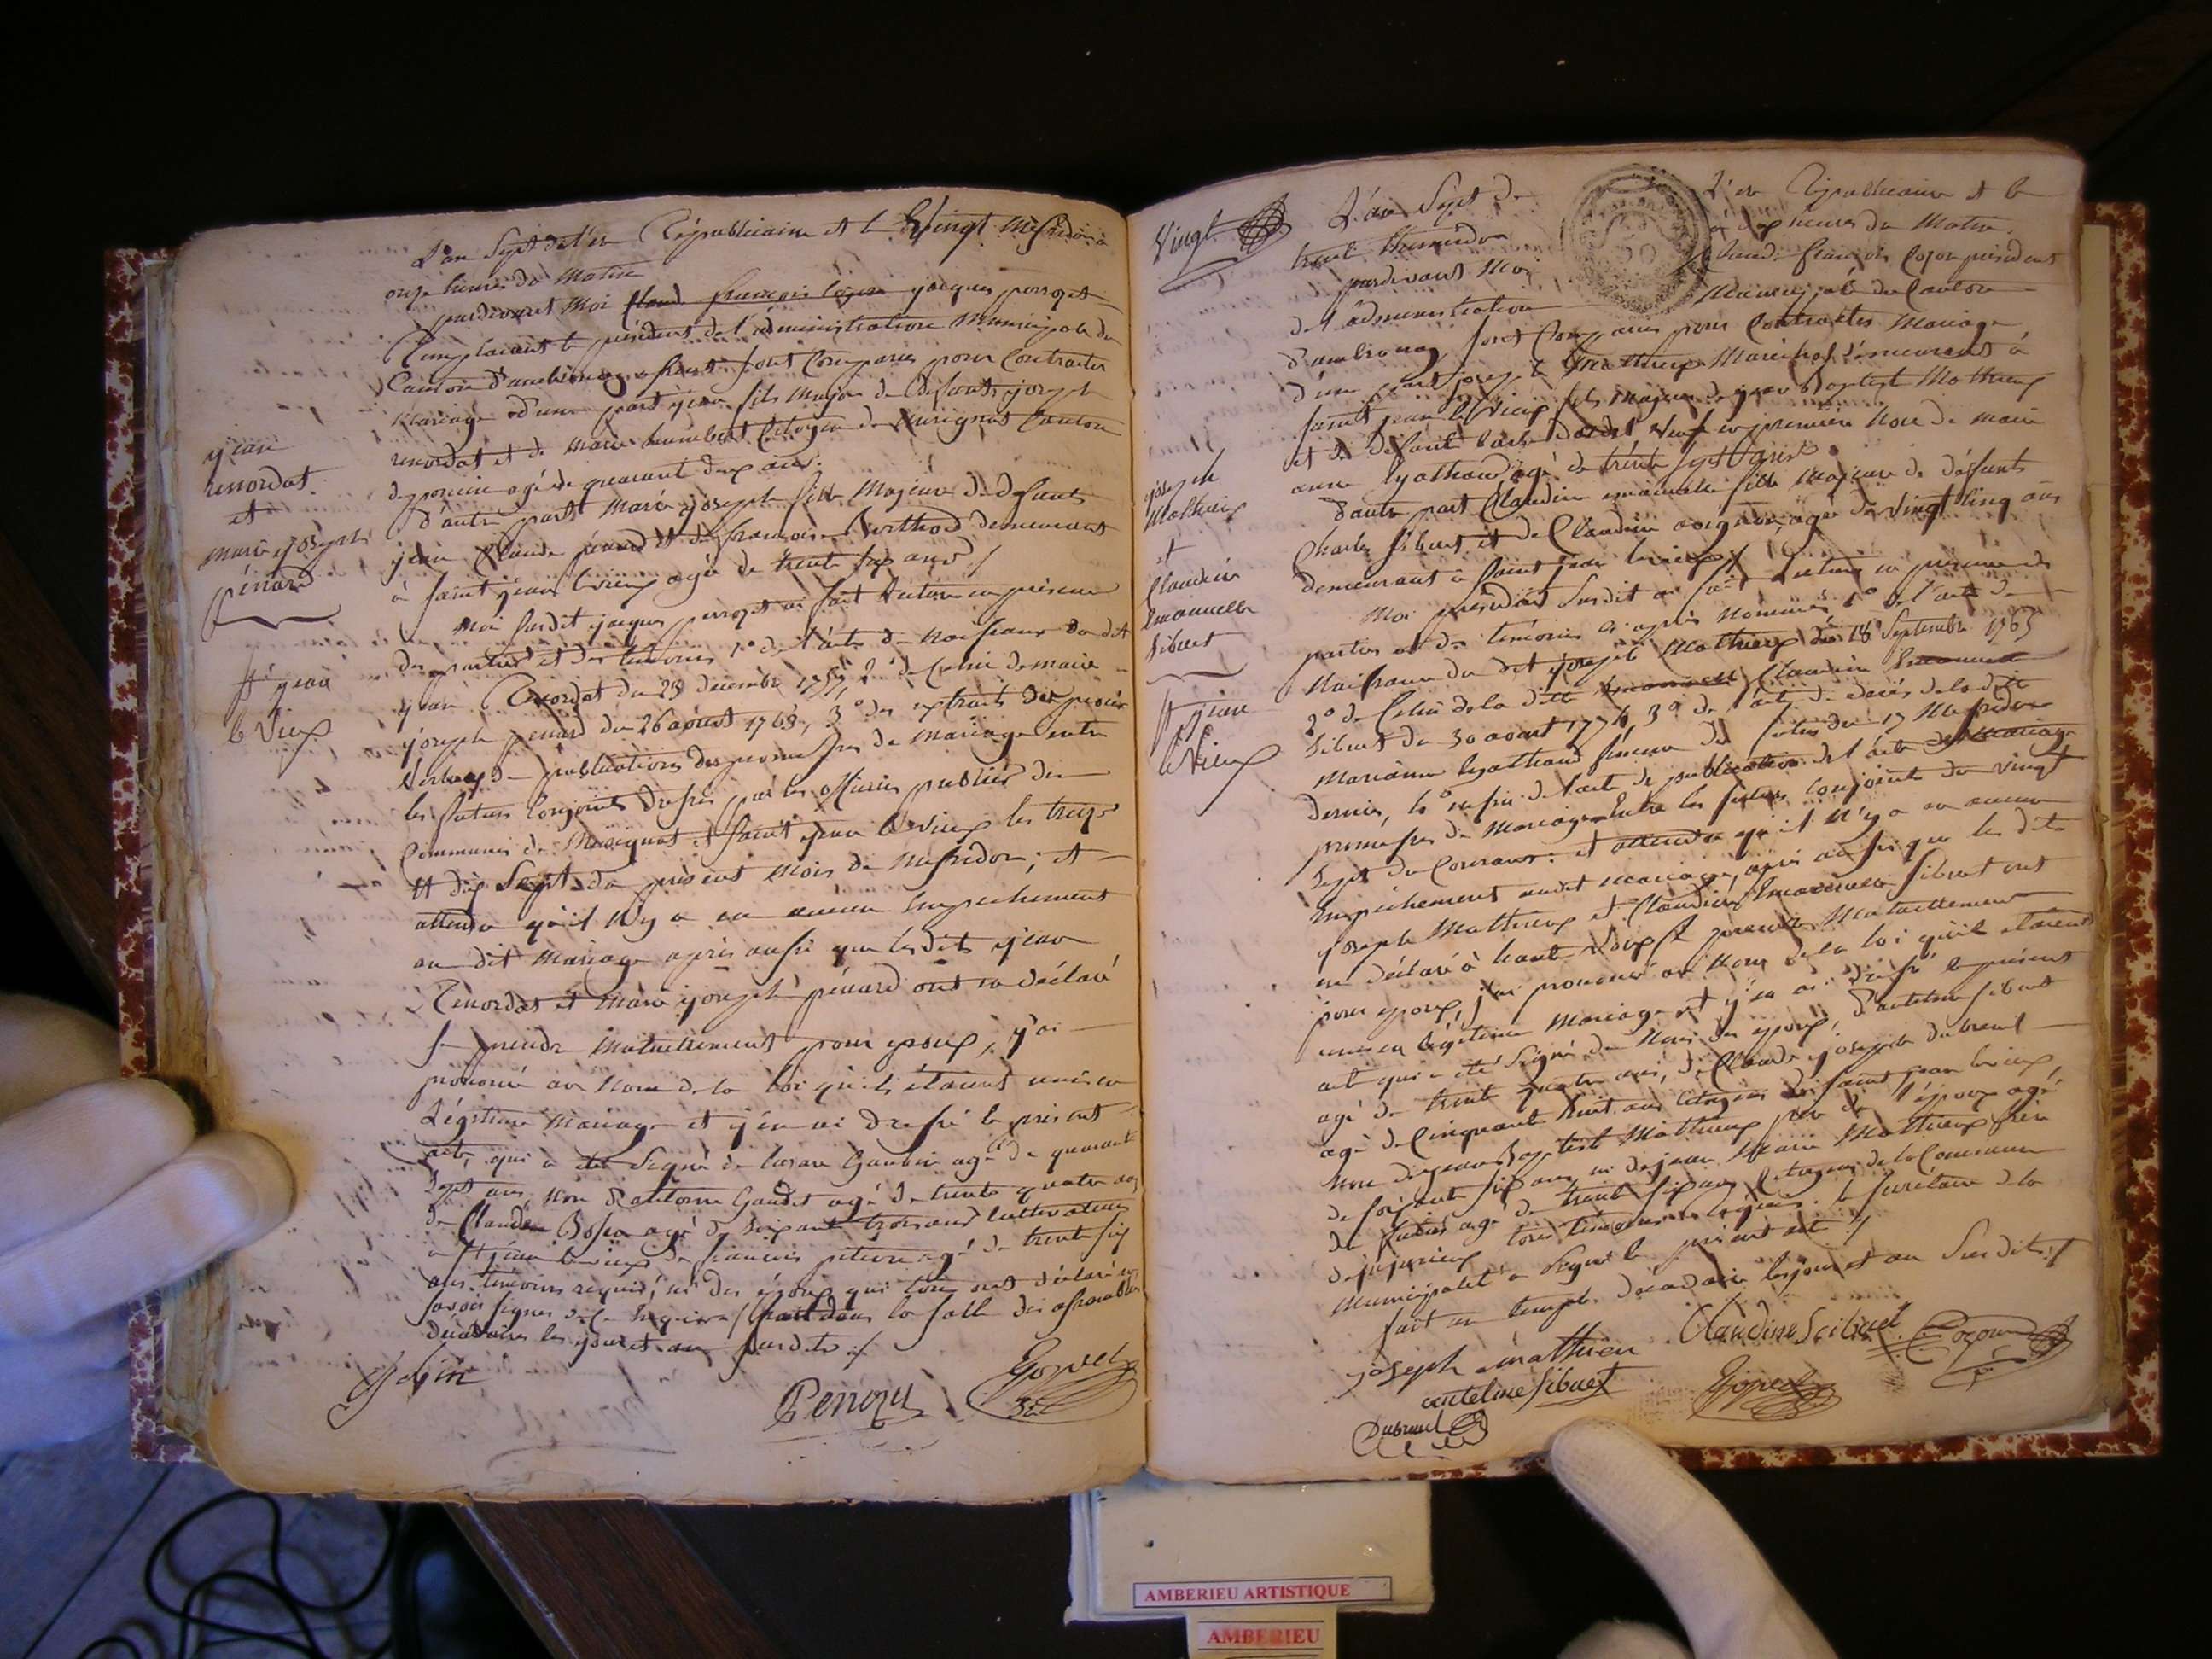 L'an Sept de l'ere Républicaine et le Vingt Messidor à
onze heures du Matin
pardevant Moi Claud françois Cozon jacques perrozet
Remplacant le président de l'administration Municipale du
Canton d'ambronay sont Comparus pour Contracter
Mariage d'une part jean fils Majeur de defunts joseph
renordat et de Marie humbert Citoyen de Canton
de poncin agé de quarant deux ans.
d'autre part Marie joseph fille Majeure de defunts
jean Claude penard et de françoise Berthod demeurant
à saint jean le vieux agée de trente six ans /
Moi susdit jacques perrozet ai fait lecture en presence
des parties et des temoins 1° de l'acte de Naissance du dit
jean Renordat du 29 decembre 1757, 2° de Celui de marie
joseph penard du 26 aoust 1763, 3° des extraits des procès
Verbaux de publications des promesses de Mariage entre
les futurs Conjoints dressés par les officiers publics des
Communes de et Saint jean le Vieux les treize
et dix Sept du present Mois de Messidor; et
attendu qu'il N'y a eu aucun Empechement
au dit Mariage après aussi que lesdits jean
Renordat et Marie joseph penard ont eu déclaré
se prendre Mutuellement pour epoux, j'ai
prononcé au Nom de la Loi qu'ils étaient unis en
Légitime Mariage et j'en ai dressé le présent
acte, qui a été Signé de Gaubin agé de quarant
Sept ans Non d'antoine Gaudet agé de trente quatre ans
de Claude agé de Soixante trois ans Cultivateurs
à St jean le vieux de francois agé de trente six
ans temoins requis, ni des époux qui tous ont déclaré ne
savoir signer de ce Enquis / fait dans la salle des assemblées
décadaires les jour et an susdits /
Perrozet
Gopvel
Sec
jean
renordat
et
marie joseph
pénard
St jean
le Vieux
Vingt
L'an Sept de L'ere Républicaine et le
trente thermidor à dix heures du Matin
pardevant Moi Claude françois Cozon président
de l'administration Municipale du Canton
d'ambronay sont Comparus pour Contracter Mariage
d'une part joseph Mathieux Marechal demeurant à
saint jean le Vieux fils majeur de jean Baptiste Mathieux
et de defunte Veuf en premiere Noce de marie
anne lyathaud agé de trente sept ans
d'autre part Claudine emanuelle fille Majeure de défunts
Charles Sibuet et de Claudine agée de Vingt Cinq ans
demeurant à saint jean le vieux /
Moi président Susdit ai fait Lecture en présence des
parties et des temoins ci après Nommés 1° de l'acte de
Naissance du dit joseph Mathieux du 18 Septembre 1763
2° de Celui de la ditte Claudine
Sibuet du 30 aoust 1774 3° de l'acte de decès de la ditte
Marianne lyathaud femme du futur du 17 Messidor
dernier, 4° enfin de l'acte de publication de l'acte de mariage
promesses de Mariage Entre les futurs Conjoints du vingt
Sept du Courant. et attendu qu'il N'y a eu aucun
Empechement audit mariage, après aussi que les dits
joseph Mathieux et Claudine Emanuelle Sibuet ont
eu déclaré à haute Voix se prendre Mutuellement
pour epoux, j'ai prononcé au Nom de la loi qu'ils étaient
unis en Légitime Mariage et j'en ai dressé le présent
acte qui a été Signé de Nous des époux, d'anthelme Sibuet
agé de trente quatre ans, de Claude joseph dubreuil
agé de Cinquante huit ans Citoyens de saint jean le vieux,
Non de jean Baptiste Mathieux père de l'époux agé
de soixante six ans, ni de jean Marie Mathieux frère
du futur agé de trente six ans Citoyens de la Commune
de jujurieux tous témoins requis. le Secrétaire de la
Municipalité a Signé le présent acte /
fait au temple décadaire les jour et an Susdits /
joseph mathieu
Claudine Scibuet
Cozon
antelme Sibuet
Gopvel
Dubreuil
joseph
Mathieux
et
Claudine
Emanuelle
Sibuet
St jean
le Vieux
AMBERIEU ARTISTIQUE
AMBERIEU